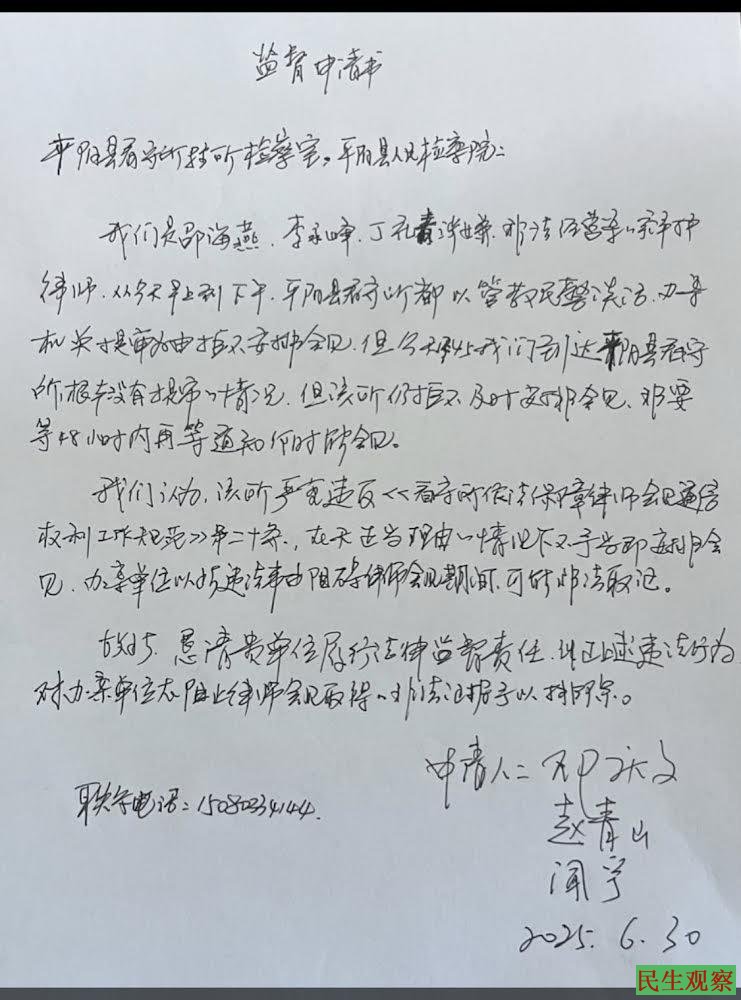 监督申请书
平阳县看守所驻所检察室、平阳县人民检察院：
我们是邵海燕、李永峰、丁孔 涉嫌非法经营案的辩护
律师。从今天早上到下午，平阳县看守所都以管教民警谈话、办案
机关提审为由拒不安排会见。但今天 我们到达平阳县看守
所，根本没有提审的情况，但该所仍拒不及时安排会见，邓要
等48小时内再等通知何时能会见。
我们认为，该所严重违反《看守所依法保障律师会见通信
权利工作规范》第二十条，在无正当理由的情况下不予当即安排会
见，办案单位以该违法事由阻碍律师会见期间，可能非法取证。
故此，恳请贵单位履行法律监督责任，纠正上述违法行为，
对办案单位在阻止律师会见取得的非法证据予以排除。
申请人：邓庆文
联系电话：15080334144.
赵青山
闻宇
2025.6.30
民生观察